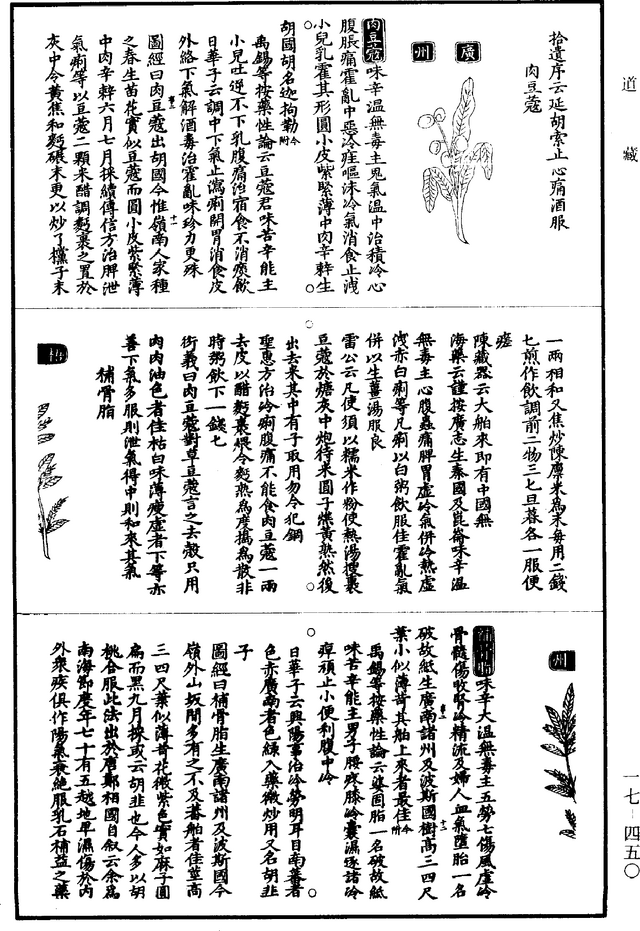 道藏
拾遺序云延胡索止心痛酒服
肉豆蔻
廣
州
肉豆蔻味辛温無毒主鬼氣温中治積冷心
腹脹痛霍亂中惡冷疰嘔沫冷氣消食止洩
小兒乳霍其形圓小皮紫緊薄中肉辛辣生
胡國胡名迦拘勒今附
禹錫等按藥性論云豆蔻君味苦辛能主
小兒吐逆不下乳腹痛治宿食不消痰飲
日華子云調中下氣止瀉痢開胃消食皮
外絡下氣解酒毒治霍亂味珍力更殊
圖經曰肉豆蔻出胡國今惟嶺南人家種
之春生苗花實似豆蔻而圓小皮紫緊薄
中肉辛辣六月七月採續傳信方治脾泄
氣痢等以豆蔻二顆米醋調麪裹之置於
灰中令黄焦和麪碾末更以炒了欓子末
一兩相和又焦炒陳廪米爲末每用二錢
七煎作飲調前二物三七旦暮各一服便
瘥
陳藏器云大舶來即有中國無
海藥云謹按廣志生秦國及崑崙味辛温
無毒主心腹蟲痛脾胃虚冷氣併冷熱虚
洩赤白痢等凡痢以白粥飲服佳霍亂氣
併以生薑湯服良
雷公云凡使須以糯米作粉使熱湯搜裹
豆蔻於煻灰中炮待米團子焦黄熟然後
出去米其中有子取用勿令犯銅
聖惠方治冷痢腹痛不能食肉豆蔻一兩
去皮以醋麪裹煨令麪熟爲度擣爲散非
時粥飲下一錢七
衍義曰肉豆蔻對草豆蔻言之去殻只用
肉肉油色者佳枯白味薄瘦虚者下等亦
善下氣多服則泄氣得中則和平其氣
補骨脂
州
補骨脂味辛大温無毒主五勞七傷風虚冷
骨髓傷敗腎冷精流及婦人血氣墮胎一名
破故紙生廣南諸州及波斯國樹高三四尺
葉小似薄荷其舶上來者最佳今附
禹錫等按藥性論云婆固脂一名破故紙
味苦辛能主男子腰疼膝冷囊濕逐諸冷
痺頑止小便利腹中冷
日華子云興陽事治冷勞明耳目南蕃者
色赤廣南者色緑入藥微炒用又名胡韭
子
圖經曰補骨脂生廣南諸州及波斯國今
嶺外山坂間多有之不及蕃舶者佳莖高
三四尺葉似薄荷花微紫色實如麻子圓
扁而黑九月採或云胡韭也今人多以胡
桃合服此法出於唐鄭相國自敘云余爲
南海節度年七十有五越地卑濕傷於内
外衆疾俱作陽氣衰絶服乳石補益之藥
一七-四五〇